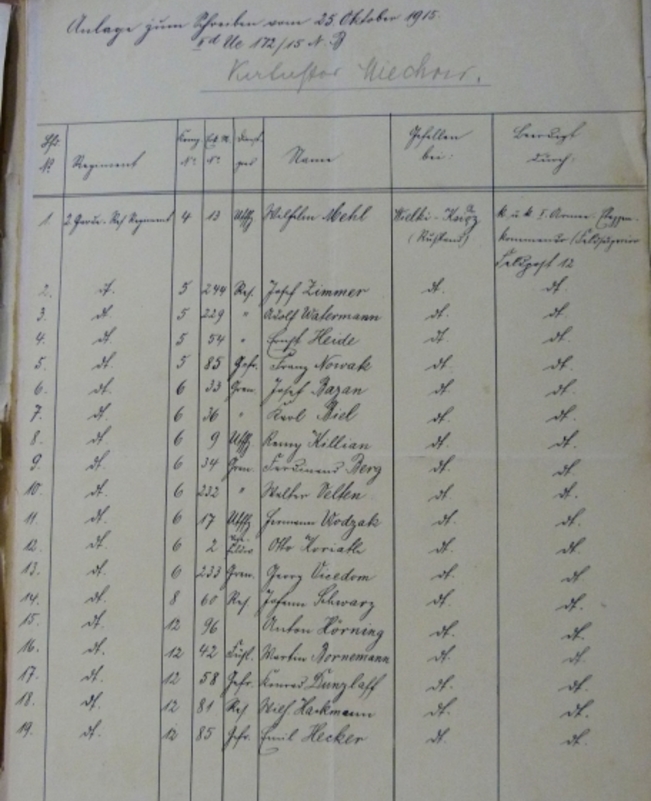 Anlage zum Schreiben vom 25. Oktober 1915.
IId Ue 172/15 N.B
Miechow.
Lfd. Nº Regiment Komp. Nº Nº Dienst- grd Name Gefallen bei: Beerdigt durch:
1. 2 Garde-Res Regiment 4 13 Uffz. Wilhelm Mehl Wielki-Książ K. u. k. I. Armee-Etappen-
(Rußland) Kommando (Feldsuperior
Feldpost 12
2. dt. 5 244 Res. Josef Zimmer dt. dt.
3. dt. 5 229 " Adolf Watermann dt. dt.
4. dt. 5 54 " Ernst Heide dt. dt.
5. dt. 5 85 Gefr. Franz Nowak dt. dt.
6. dt. 6 33 Gren. Josef Bazan dt. dt.
7. dt. 6 36 " Karl Biel dt. dt.
8. dt. 6 9 Uffz. Remy Killian dt. dt.
9. dt. 6 34 Gren. Ferdinand Berg dt. dt.
10. dt. 6 232 " Walter Velten dt. dt.
11. dt. 6 17 Uffz. Hermann Wodzak dt. dt.
12. dt. 6 2 Otto Koriath dt. dt.
13. dt. 6 233 Gren. Georg Vicedom dt. dt.
14. dt. 8 60 Res. Johann Schwarz dt. dt.
15. dt. 12 96 Anton Hörning dt. dt.
16. dt. 12 42 Füsl. Martin Bornemann dt. dt.
17. dt. 12 58 Gefr. Konrad Dunzlaff dt. dt.
18. dt. 12 81 Res Wilh. Hackmann dt. dt.
19. dt. 12 85 Gefr. Emil Hecker dt. dt.